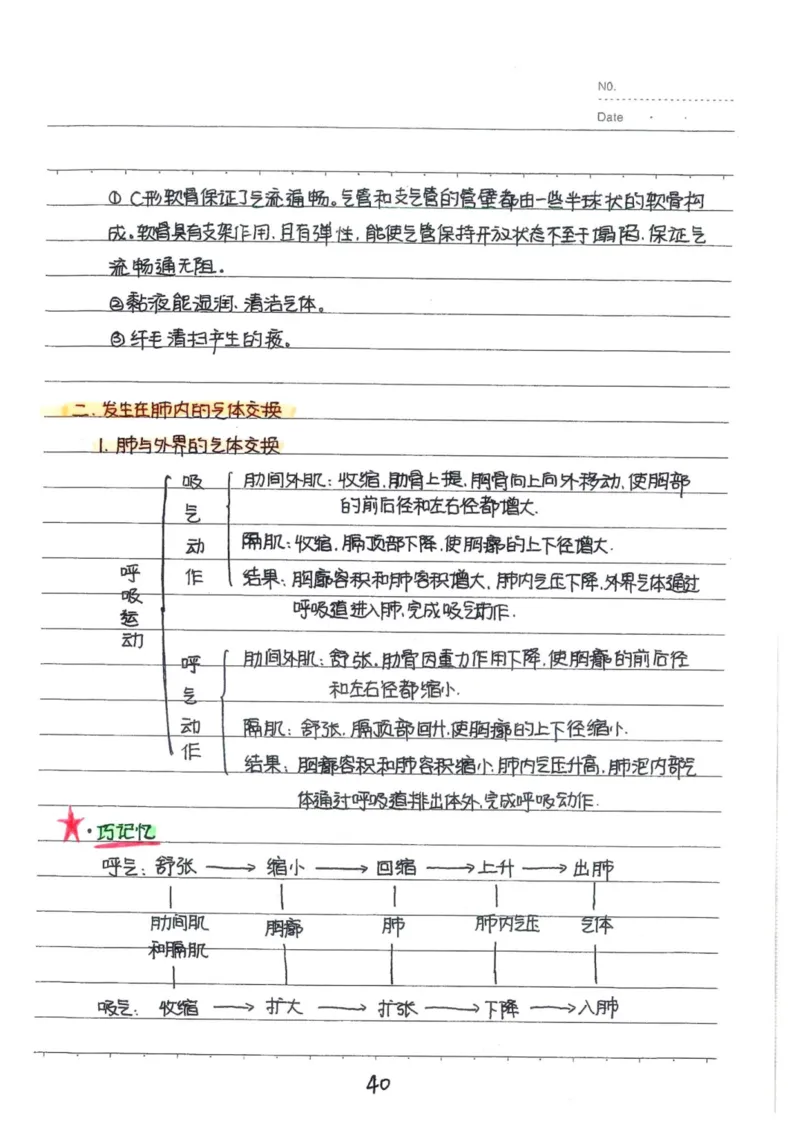 NO.
Date
① C形软骨保证了气流通畅。气管和支气管的管壁都由一些半球状的软骨构
成。软骨具有支架作用,且有弹性,能使气管保持开放状态不至于塌陷,保证气
流畅通无阻。
②黏液能湿润、清洁气体。
③纤毛清扫产生的痰。
二.发生在肺内的气体交换
1.肺与外界的气体交换
呼吸运动
吸气动作
肋间外肌:收缩,肋骨上提,胸骨向上向外移动,使胸部
的前后径和左右径都增大.
膈肌:收缩,膈顶部下降,使胸廓的上下径增大.
结果:胸廓容积和肺容积增大,肺内气压下降,外界气体通过
呼吸道进入肺,完成吸气动作.
呼气动作
肋间外肌:舒张,肋骨因重力作用下降,使胸廓的前后径
和左右径都缩小.
膈肌:舒张,膈顶部回升,使胸廓的上下径缩小.
结果:胸廓容积和肺容积缩小,肺内气压升高,肺泡内部气
体通过呼吸道排出体外,完成呼吸动作.
★·巧记忆
呼气:舒张→缩小→回缩→上升→出肺
肋间肌 胸廓 肺 肺内气压 气体
和膈肌
吸气:收缩→扩大→扩张→下降→入肺
40